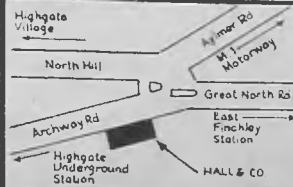 Highgate
Village
Aylmer Rd
M.1.
Motorway
North Hill
Great North Rd
Archway Rd
East
Finchley
Station
Highgate
Underground
Station
HALL & CO